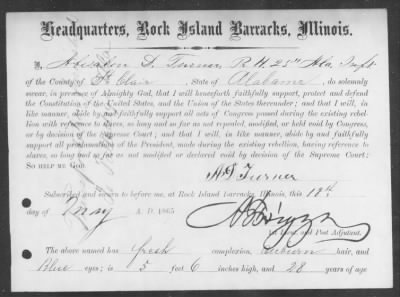 Headquarters, Rock Island Barracks, Illinois.
I, S. Turner 25" Ala. Inft
of the County of St. Clair, State of Alabama, do solemnly
swear, in presence of Almighty God, that I will henceforth faithfully support, protect and defend
the Constitution of the United States, and the Union of the States thereunder; and that I will, in
like manner, abide by and faithfully support all acts of Congress passed during the existing rebel-
lion with reference to slaves, so long and so far as not repealed, modified, or held void by Congress,
or by decision of the Supreme Court; and that I will, in like manner, abide by and faithfully
support all proclamations of the President, made during the existing rebellion, having reference
to slaves, so long and so far as not modified or declared void by decision of the Supreme Court:
So HELP ME GOD.
A. S. Turner
Subscribed and sworn to before me, at Rock Island Barracks, Illinois, this 18th
day of May A. D. 1865
1st Lieut. and Post Adjutant.
The above named has fresh complexion, auburn hair, and
Blue eyes; is 5 feet 6 inches high, and 28 years of age